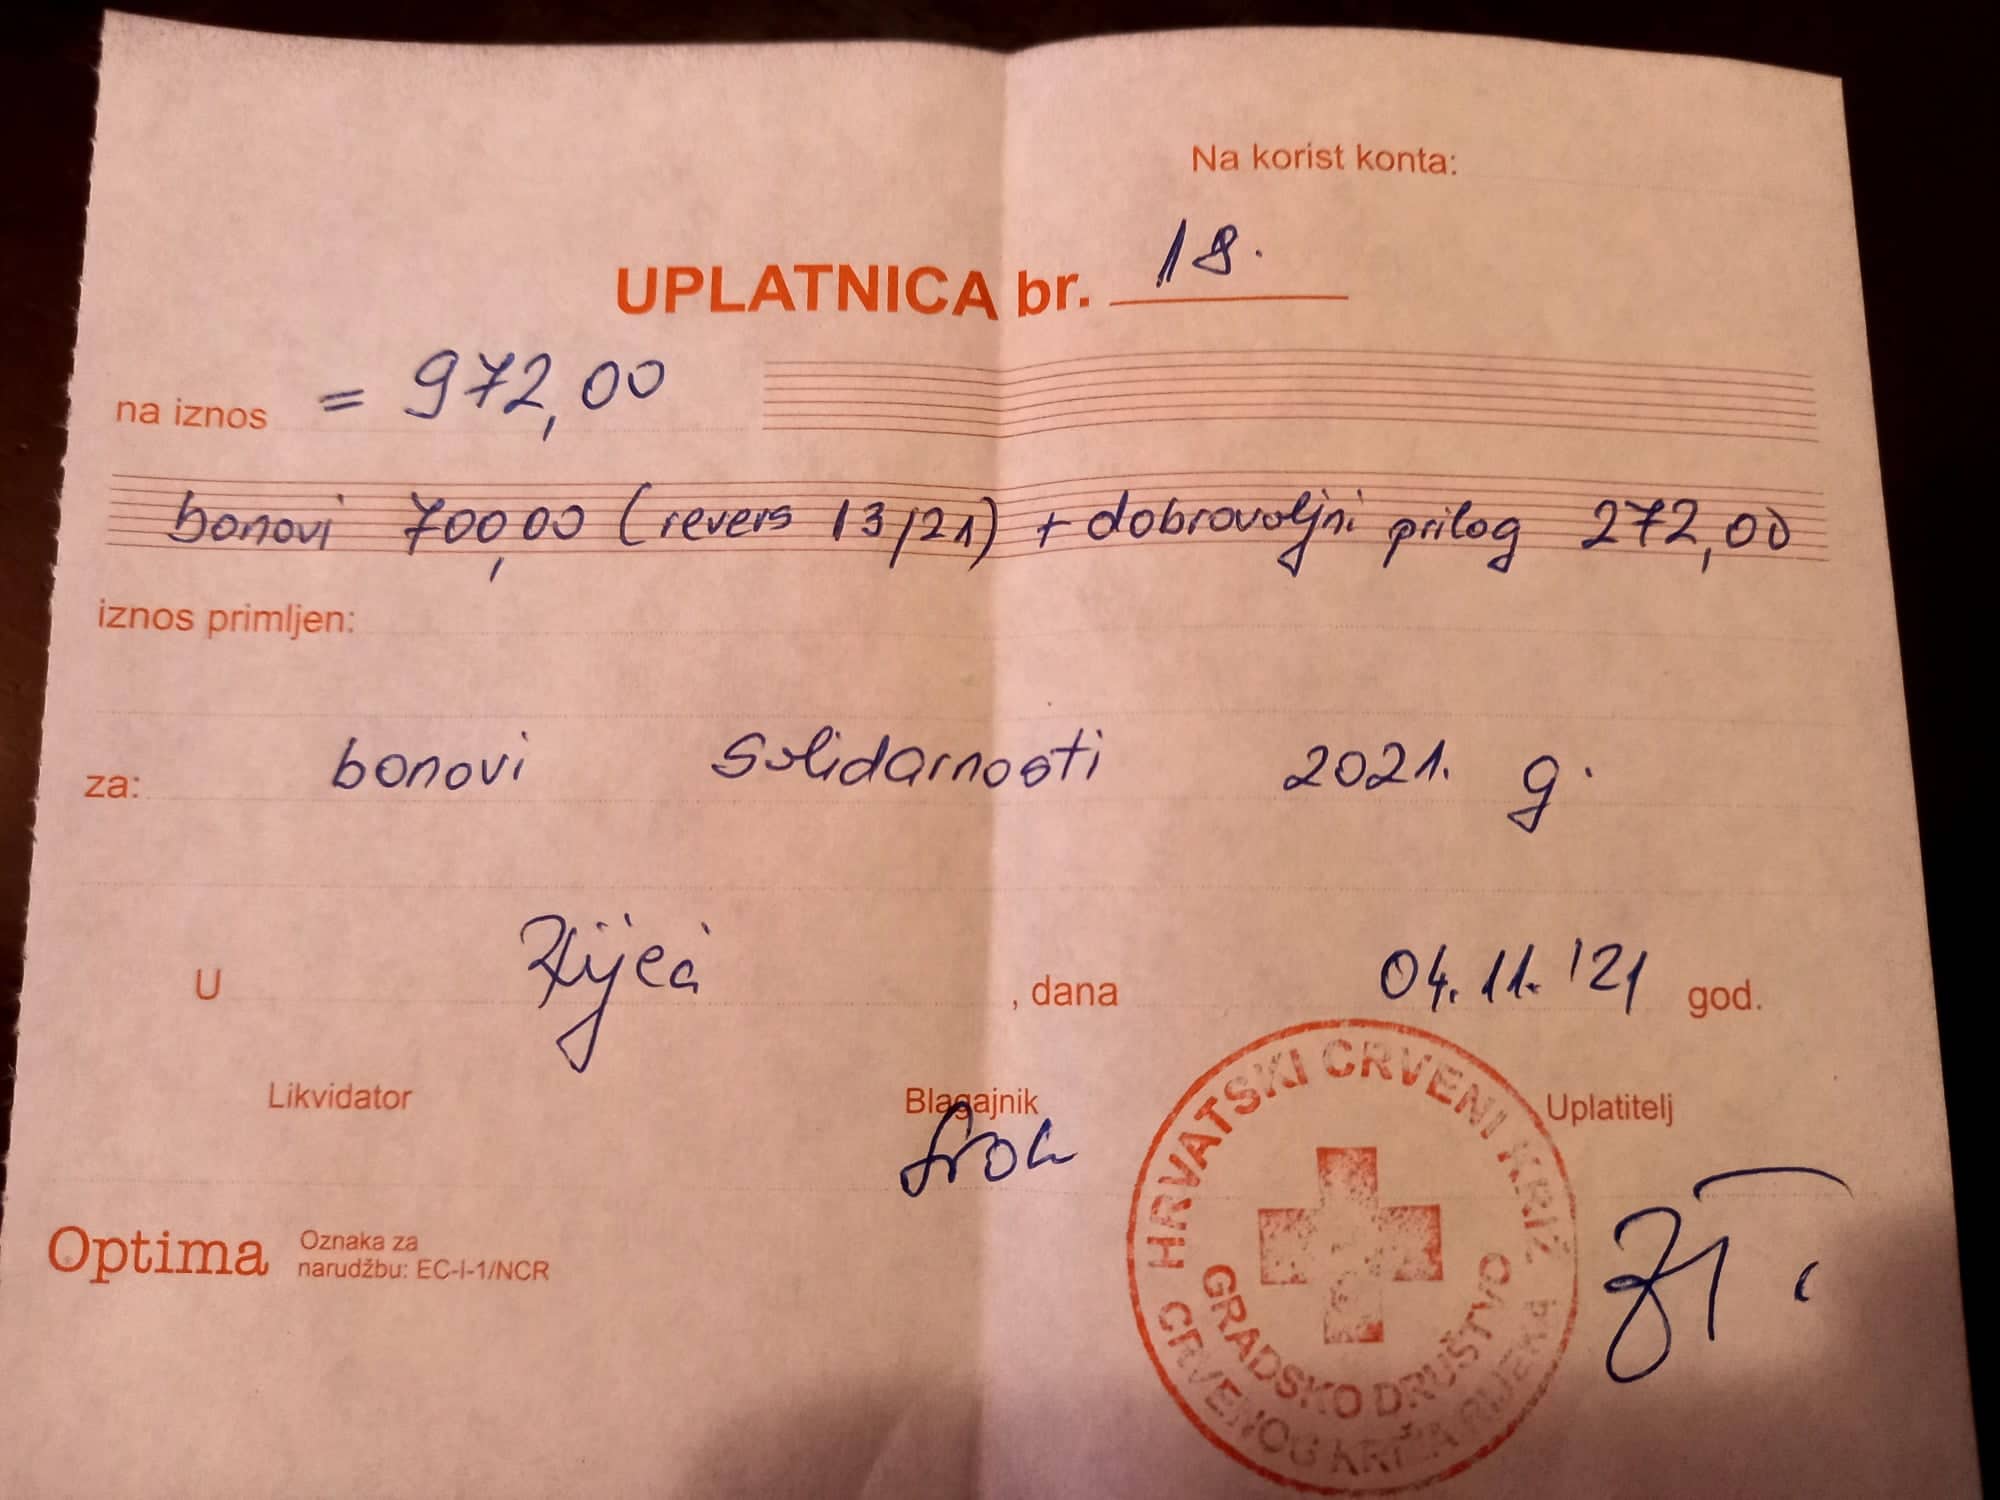 Na korist konta:
UPLATNICA br. 18.
na iznos = 972,00
bonovi 700,00 (revers 13/21) + dobrovoljni prilog 272,00
iznos primljen:
za: bonovi solidarnosti 2021. g.
U , dana 04.11.'21 god.
Likvidator Blagajnik Uplatitelj
HRVATSKI CRVENI KRIŽ
GRADSKO DRUŠTVO
CRVENOG KRIŽA RIJEKA
Optima Oznaka za
narudžbu: EC-I-1/NCR